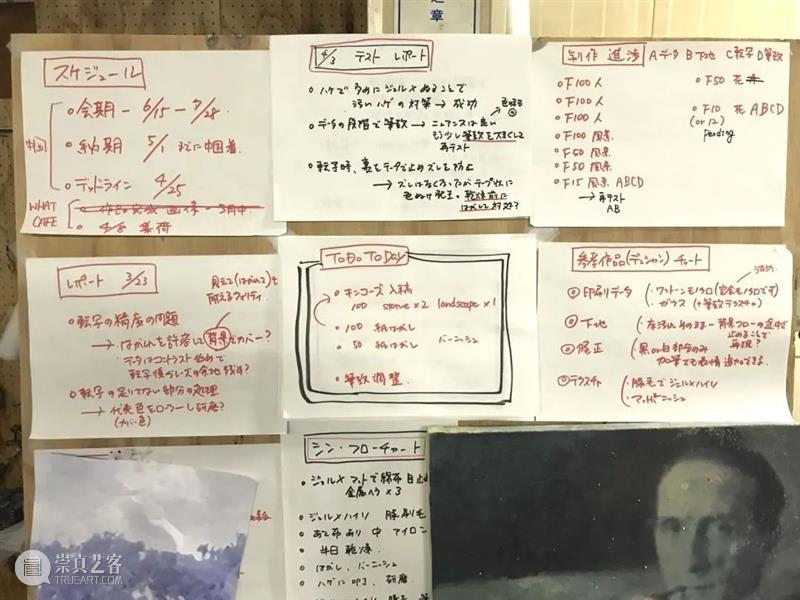 之章
スケジュール
会期 - 6/15 - 7/28.
納期 5/1 までに中国着.
デッドライン 4/25
WHAT CAFE
4/8 集荷
4/3 テスト レポート
ハケで多めにジェルメぬることで
汚いハゲの対策 → 成功
データの段階で筆致 → ニュアンスは良い
もう少し筆致を大きくして
再テスト
転写時、裏をテープで止めズレを防止
→ ズレはなくなったがテープ状に
色ぬけ発生。乾燥前に
はがして対処?
制作 進渉 Aデータ B下地 C転写 D筆致
F100人
F100人
F100人
F100 風景
F50 風景
F50 風景
F15 風景 ABCD
→ 再テスト
AB
F50 花
F10 花 ABCD
(or 12)
pending
レポート 3/23
見えて(はがれて)も
耐えるクオリティ
転写の精度の問題
→ はがれを許容して背景でカバー?
データはコントラスト低めで
転写の足りてない部分の処理
→ 代表色をローラーし研磨?
ToDo ToDay
キンコーズ 入稿
100 statue×2 landscape×1
100 紙はがし
50 紙はがし バーニッシュ
筆致調整
参考作品(デュシャン)チャート
印刷データ
ガラス (+筆致テクスチャ)
下地
背景フローの途中で
止めることで
再現?
修正
黒い白部分のみ
加筆でも表情追加できる.
テクスチャ
豚毛でジェルメハイリ
マットバーニッシュ
シン・フローチャート
ジェルメ マットで綿布目止め
金属ヘラ×3
ジェルメハイリ 豚刷毛
あて布あり 中 アイロン
半日乾燥.
はがし、バーニッシュ
崇真艺客
TRUEART.COM